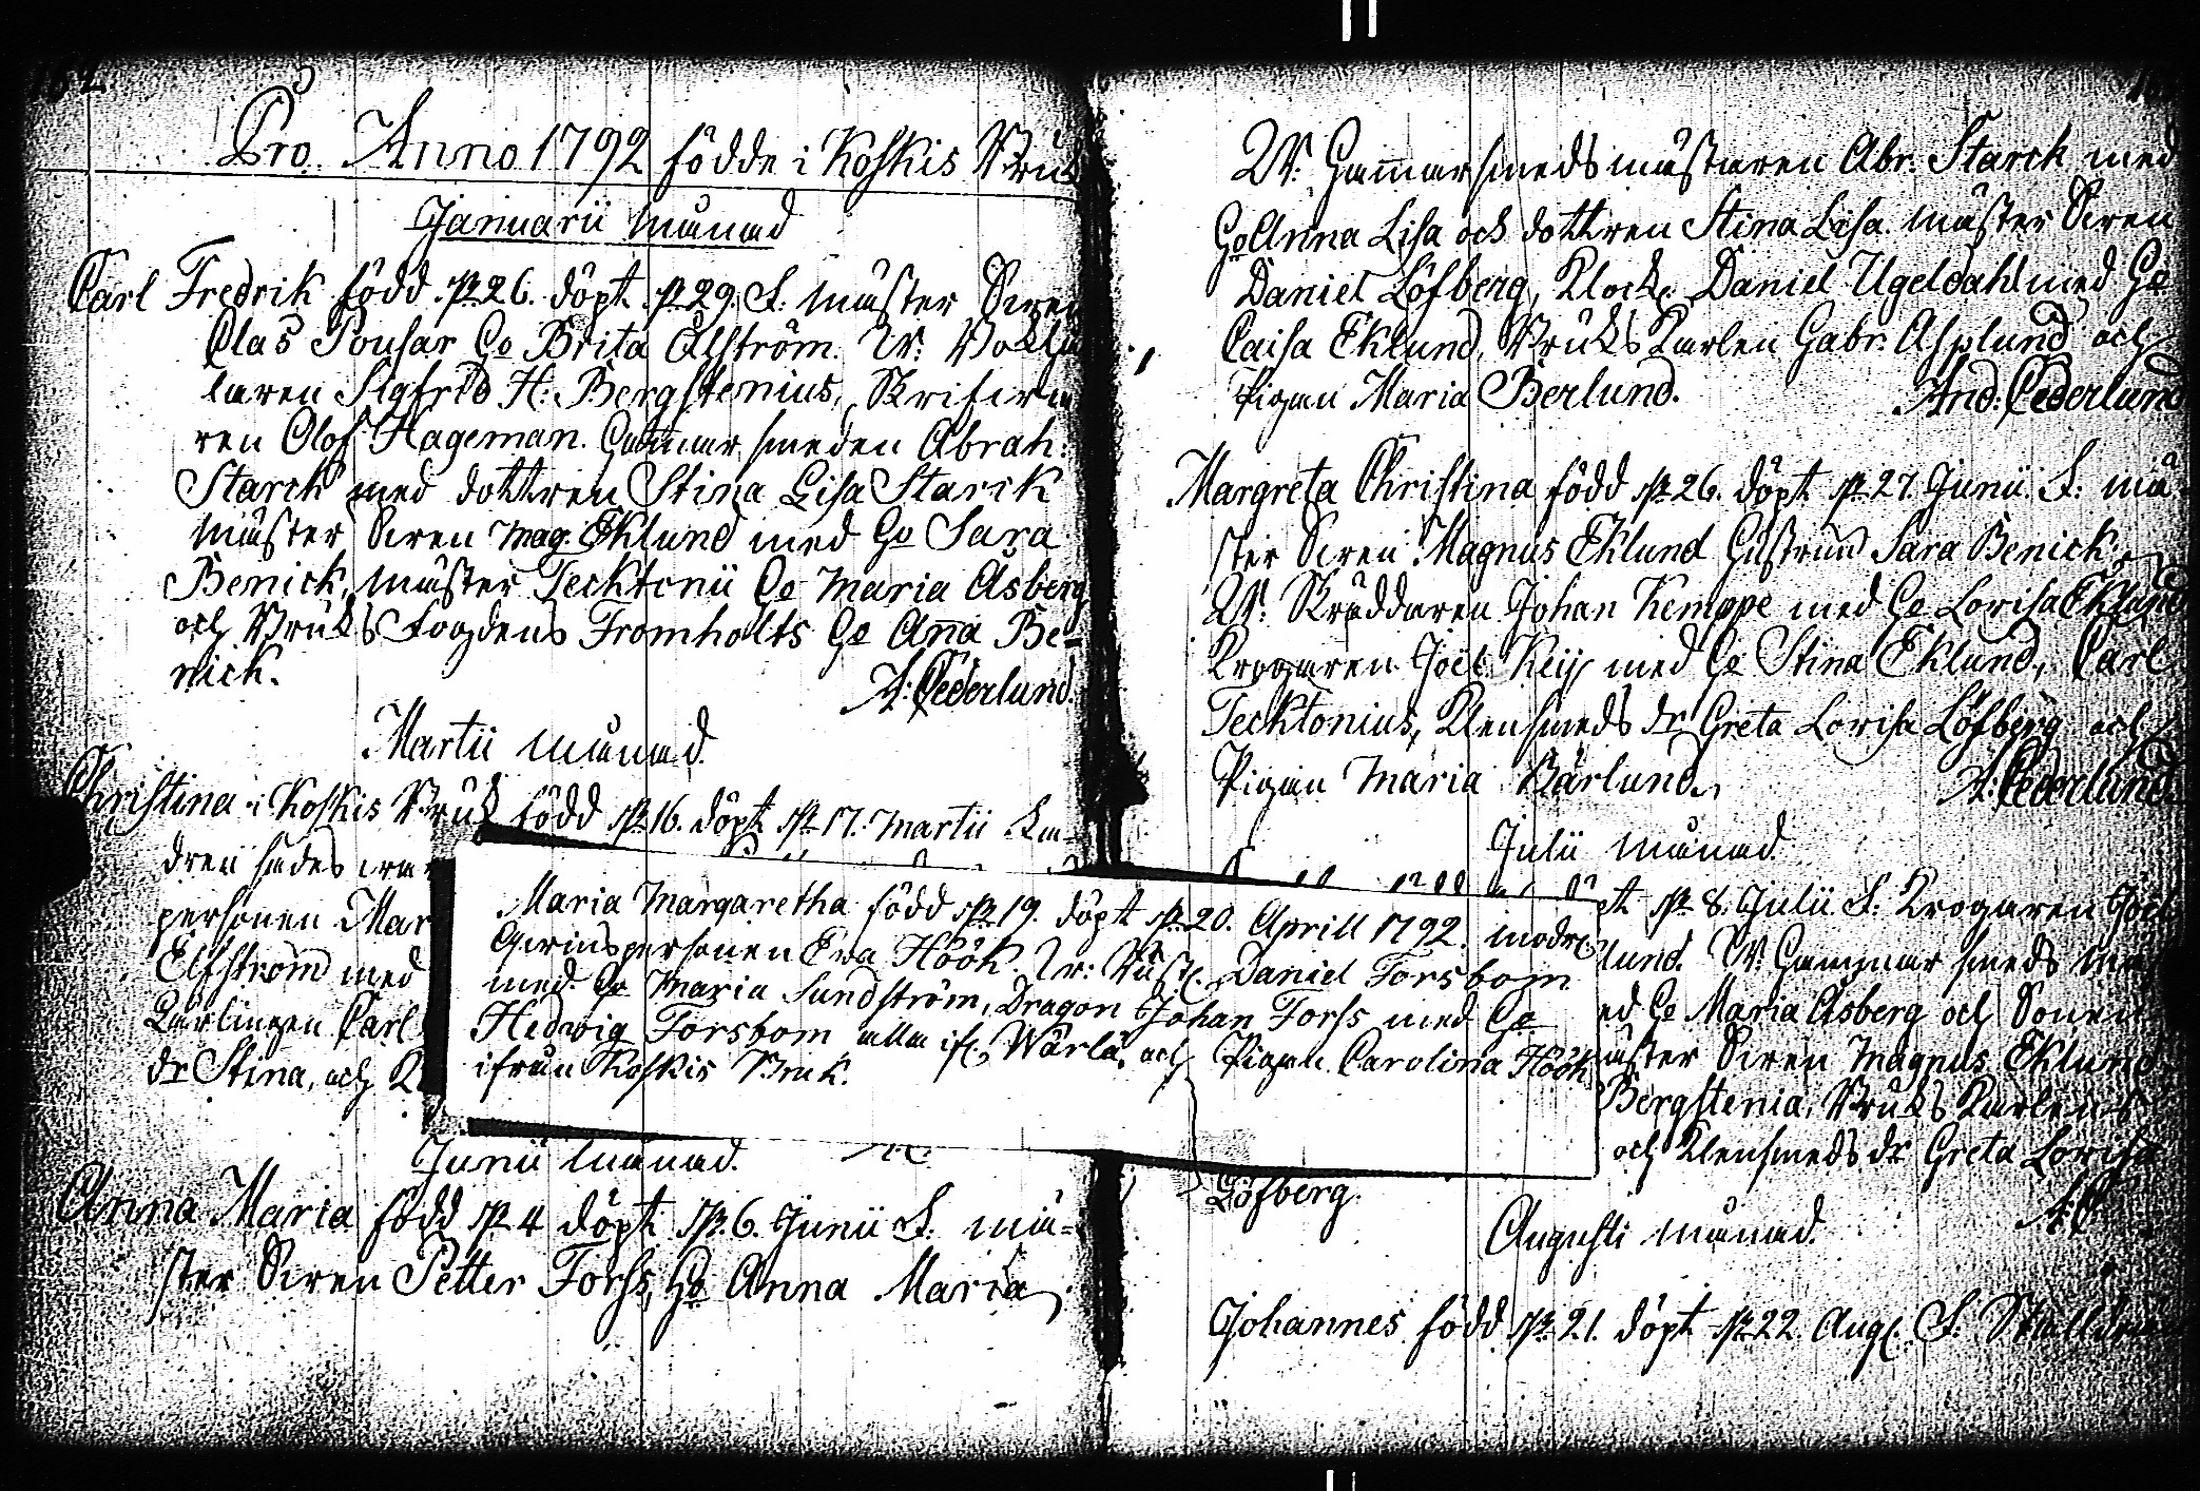 Pro. Anno 1792 födde i Koskis Bruk
Januarii månad
Carl Fredrik född d. 26. döpt d. 29. F. mäster Sven
Clas Ponsar Ho Brita Alström. W:
laren Sigfrid H: Bergstenius,
ren Olof Hageman. Hammar smeden Abrah:
Starck med dottren Stina Lisa Starck
mäster Sven Mag. Eklund med Ho Sara
Benick, mäster Tecktonii Ho Maria Asberg
och Bruks Fogdens Fromholts Ho Anna Be-
nick.
A: Cederlund.
Martii månad.
Christina i Koskis Bruk född d. 16. döpt d. 17. Martii
dren
personen Mar
Elfström med
Carl
dr Stina, och
Maria Margaretha född d. 19. döpt d. 20. Aprill 1792. modr.
personen Eva Höök. W: Daniel Forsbom
med Ho Maria Sundström, Dragon Johan Forss med Ho
Hedwig Forsbom alla if. Wärlä, och Pigan Carolina Höök
ifrån Koskis Bruk.
Junii månad.
Anna Maria född d. 4 döpt d. 6. Junii F. mä-
ster Sven Petter Forss, Ho Anna Maria
W: Hammarsmedsmästaren Abr. Starck med
Ho Anna Lisa och dottren Stina Lisa. mäster Sven
Daniel Löfberg, Klock. Daniel Ugeldahl med Ho
Caisa Eklund, Bruks Karlen Gabr. Asplund och
Pigan Maria Berlund.
And: Cederlund
Margreta Christina född d. 26. döpt d. 27. Junii. F: mä-
ster Sven Magnus Eklund Hustrun Sara Benick.
W: Skräddaren Johan Kemppe med Ho Lovisa Eklund
Krogaren Joël Keij med Ho Stina Eklund, Carl
Tecktonius, Klensmeds dr Greta Lovisa Löfberg och
Pigan Maria Bärlund.
A: Cederlund.
Julii månad.
pt d. 8. Julii F: Krogaren Joël
lund. W: Hammar smeds
ed Ho Maria Asberg och Sonen
äster Sven Magnus Eklund
Bergstenia, Bruks Karlens
och Klensmeds dr Greta Lovisa
Löfberg.
A: C
Augusti månad.
Johannes född d. 21. döpt d. 22. Aug. F.